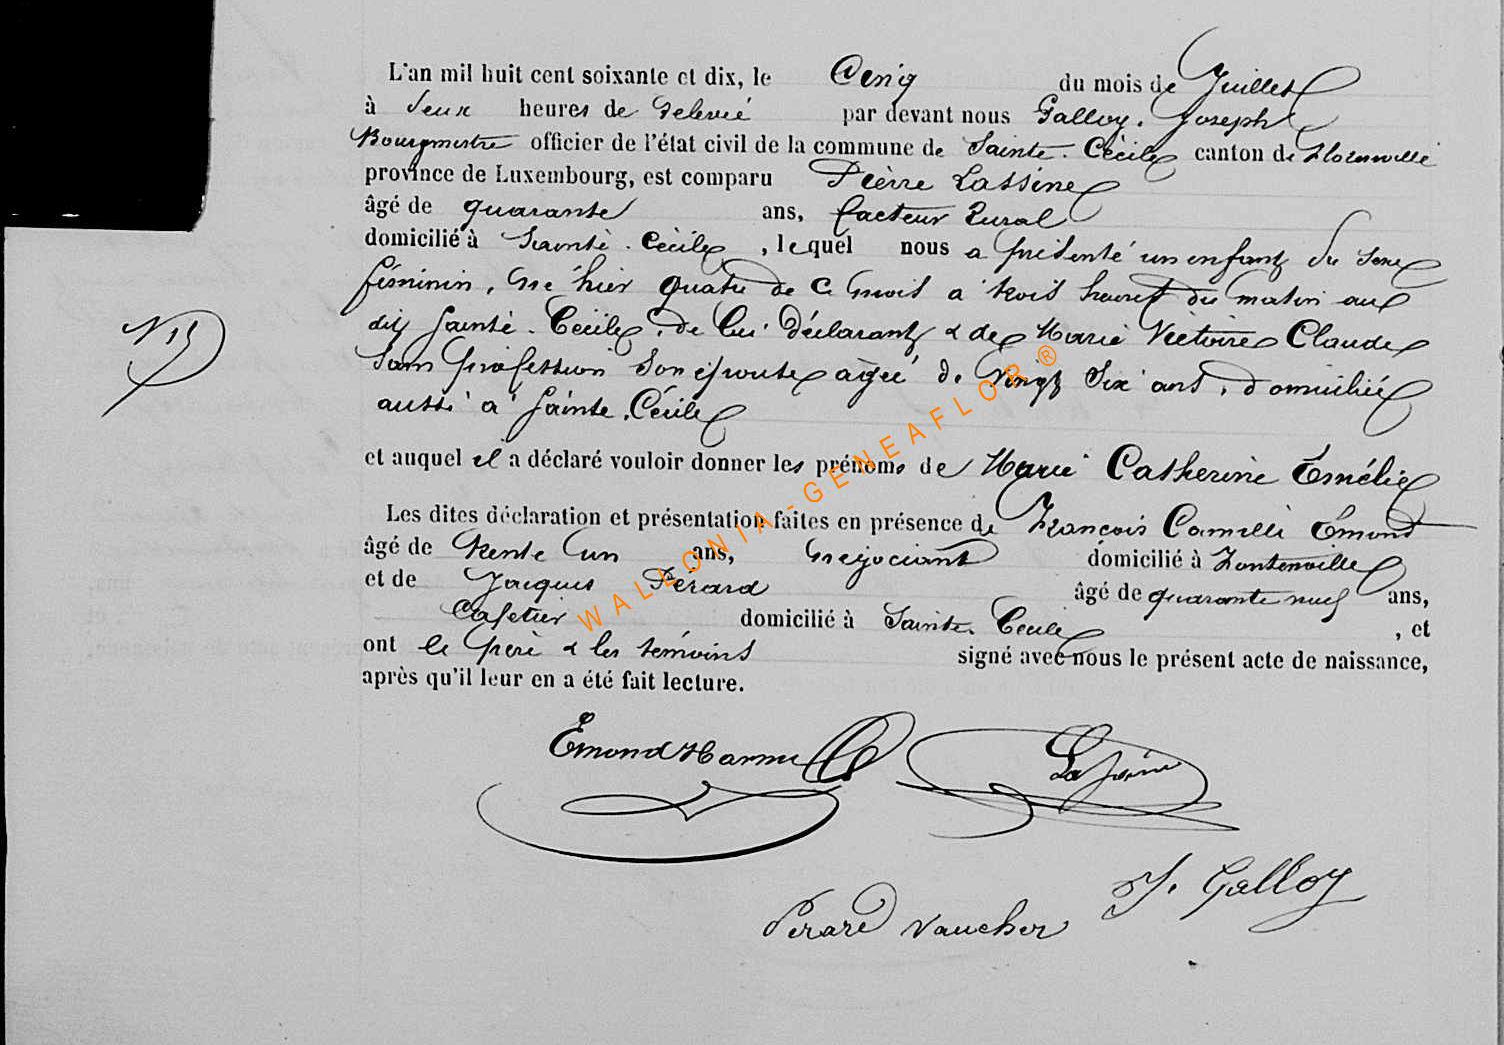 L'an mil huit cent soixante et dix, le Cinq du mois de Juillet
à deux heures de relevée par devant nous Galloy, Joseph
Bourgmestre officier de l'état civil de la commune de Sainte-Cécile canton de Florenville
province de Luxembourg, est comparu Pierre Lassine
âgé de quarante ans, facteur Rural
domicilié à Sainte-Cécile, lequel nous a présenté un enfant du sexe
féminin, né hier quatre de ce mois à trois heures du matin au
dit Sainte-Cécile, de lui déclarant & de Marie Victoire Claude
sans profession son épouse agée de Vingt Six ans, domiciliée
aussi à Sainte-Cécile
N 15
et auquel il a déclaré vouloir donner les prénoms de Marie Catherine Emélie
Les dites déclaration et présentation faites en présence de François Camille Emond
âgé de trente un ans, négociant domicilié à Fontenoille
et de Jacques Pérard âgé de quarante neuf ans,
Cafetier domicilié à Sainte-Cécile, et
ont le père & les témoins signé avec nous le présent acte de naissance,
après qu'il leur en a été fait lecture.
Emond Lassine
J. Galloy
Perard Vaucher
WALLONIA-GENEAFLOR®